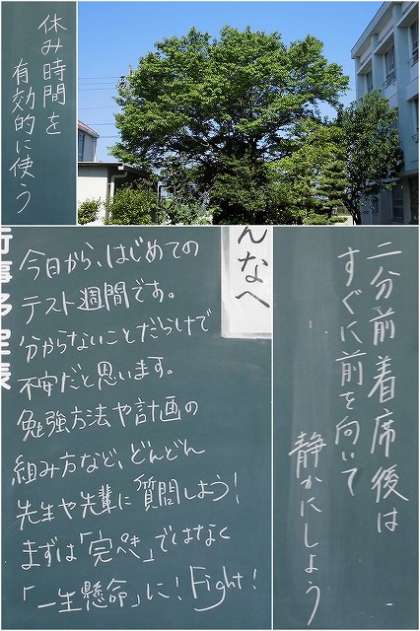 休み時間を
有効的に使う
行事予定表
んなへ
今日から、はじめての
テスト週間です。
分からないことだらけで
不安だと思います。
勉強方法や計画の
組み方など、どんどん
先生や先輩に質問しよう!
まずは「完ぺき」ではなく
「一生懸命」に! Fight!
二分前着席後は
すぐに前を向いて
静かにしよう